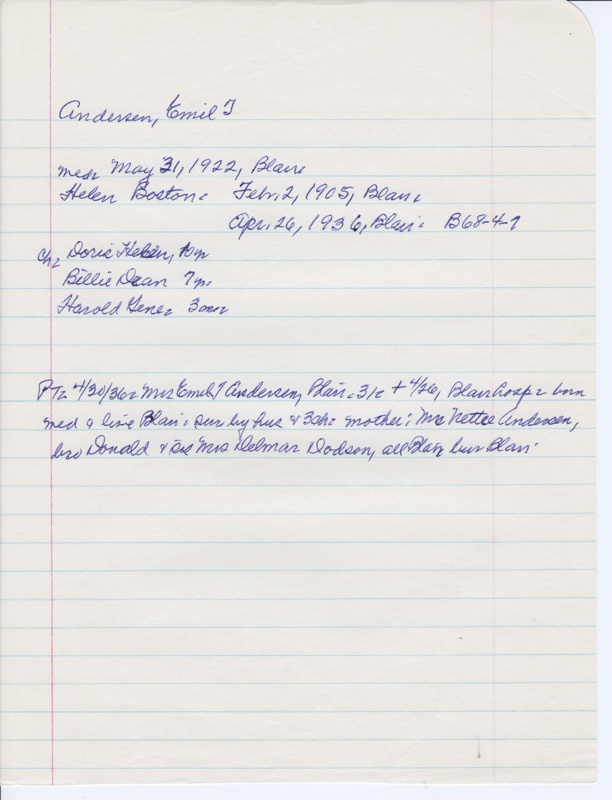 Andersen, Emil T
med: May 31, 1922, Blair:
Helen Boston: Feb. 2, 1905, Blair:
Apr. 26, 1936, Blair: B68-4-7
ch: Doris Helen, 10yr
Billie Dean 7yr:
Harold Gene: 3mo:
PT: 4/30/36: Mrs Emil T Andersen, Blair: 31: + 4/26, Blair hosp: born
med & live Blair: sur by hus & 3ch: mother: Mrs Nettie Andersen,
bro Donald & sis Mrs Delmar Dodson, all Blair bur Blair: